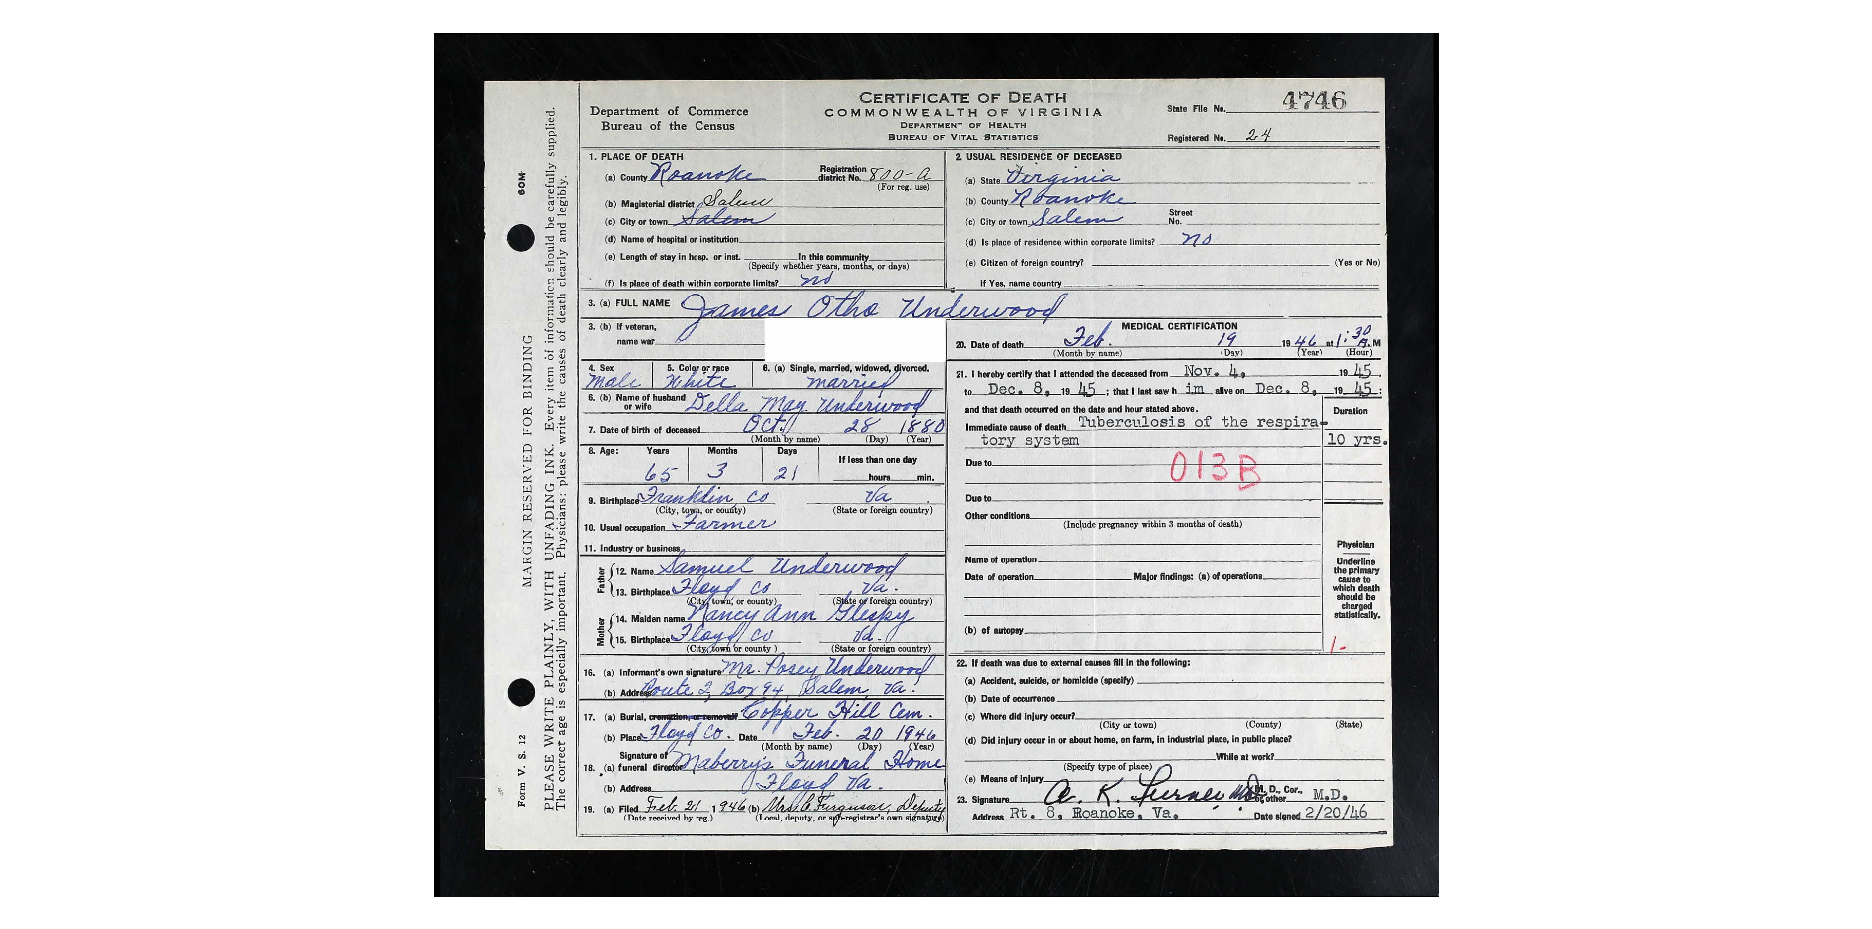 Department of Commerce
Bureau of the Census
CERTIFICATE OF DEATH
COMMONWEALTH OF VIRGINIA
DEPARTMENT OF HEALTH
BUREAU OF VITAL STATISTICS
State File No. 4746
Registered No. 24
MARGIN RESERVED FOR BINDING
PLEASE WRITE PLAINLY, WITH UNFADING INK. Every item of information should be carefully supplied.
The correct age is especially important. Physicians: please write the causes of death clearly and legibly.
Form V. S. 12
60M
1. PLACE OF DEATH
(a) County Roanoke Registration district No. 800-A
(For reg. use)
(b) Magisterial district Salem
(c) City or town Salem
(d) Name of hospital or institution
(e) Length of stay in hosp. or inst. In this community
(Specify whether years, months, or days)
(f) Is place of death within corporate limits? no
2. USUAL RESIDENCE OF DECEASED
(a) State Virginia
(b) County Roanoke
(c) City or town Salem Street No.
(d) Is place of residence within corporate limits? no
(e) Citizen of foreign country? (Yes or No)
If Yes, name country
3. (a) FULL NAME James Otho Underwood
3. (b) If veteran,
name war
4. Sex 5. Color or race 6. (a) Single, married, widowed, divorced.
Male White married
6. (b) Name of husband or wife Della May Underwood
7. Date of birth of deceased Oct. 28 1880
(Month by name) (Day) (Year)
8. Age: Years Months Days If less than one day
65 3 21 hours min.
9. Birthplace Franklin Co Va
(City, town, or county) (State or foreign country)
10. Usual occupation Farmer
11. Industry or business
Father
12. Name Samuel Underwood
13. Birthplace Floyd Co Va.
(City, town, or county) (State or foreign country)
Mother
14. Maiden name Nancy Ann
15. Birthplace Floyd Co Va.
(City, town or county) (State or foreign country)
16. (a) Informant's own signature Mr. Posey Underwood
(b) Address Route 2, Box 94, Salem, Va.
17. (a) Burial, cremation, or removal? Copper Hill Cem.
(b) Place Floyd Co. Date Feb. 20 1946
(Month by name) (Day) (Year)
Signature of
18. (a) funeral director Maberry's Funeral Home
(b) Address Floyd Va.
19. (a) Filed Feb 21 1946 (b) Mrs. C Ferguson, Deputy
(Date received by reg.) (Local, deputy, or sub-registrar's own signature)
MEDICAL CERTIFICATION
20. Date of death Feb. 19 1946 at 1:30 A.M
(Month by name) (Day) (Year) (Hour)
21. I hereby certify that I attended the deceased from Nov. 4, 1945
to Dec. 8, 1945; that I last saw him alive on Dec. 8, 1945;
and that death occurred on the date and hour stated above. Duration
Immediate cause of death Tuberculosis of the respira-
tory system 10 yrs.
Due to 013B
Due to
Other conditions
(Include pregnancy within 3 months of death)
Name of operation
Date of operation Major findings: (a) of operations
(b) of autopsy
Physician
Underline
the primary
cause to
which death
should be
charged
statistically.
1-
22. If death was due to external causes fill in the following:
(a) Accident, suicide, or homicide (specify)
(b) Date of occurrence
(c) Where did injury occur?
(City or town) (County) (State)
(d) Did injury occur in or about home, on farm, in industrial place, in public place?
While at work?
(Specify type of place)
(e) Means of injury
23. Signature A. K. Turner MD M. D., Cor., or other M.D.
Address Rt. 8, Roanoke, Va. Date signed 2/20/46